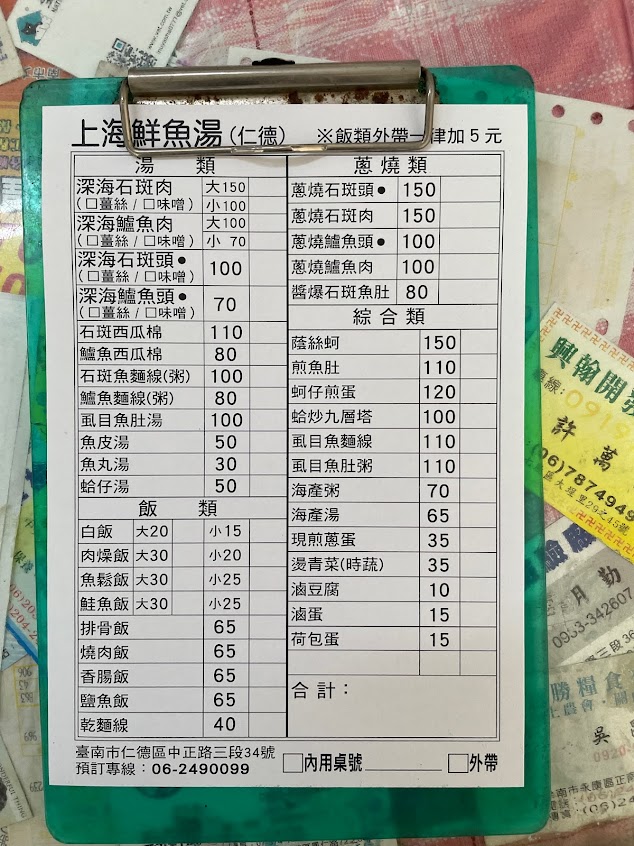 上海鮮魚湯(仁德) ※飯類外帶一律加5元
湯 類
深海石斑肉 大150
(□薑絲/□味噌) 小100
深海鱸魚肉 大100
(□薑絲/□味噌) 小 70
深海石斑頭● 100
(□薑絲/□味噌)
深海鱸魚頭● 70
(□薑絲/□味噌)
石斑西瓜棉 110
鱸魚西瓜棉 80
石斑魚麵線(粥) 100
鱸魚麵線(粥) 80
虱目魚肚湯 100
魚皮湯 50
魚丸湯 30
蛤仔湯 50
飯 類
白飯 大20 小15
肉燥飯 大30 小20
魚鬆飯 大30 小25
鮭魚飯 大30 小25
排骨飯 65
燒肉飯 65
香腸飯 65
鹽魚飯 65
乾麵線 40
蔥燒類
蔥燒石斑頭● 150
蔥燒石斑肉 150
蔥燒鱸魚頭● 100
蔥燒鱸魚肉 100
醬爆石斑魚肚 80
綜合類
蔭絲蚵 150
煎魚肚 110
蚵仔煎蛋 120
蛤炒九層塔 100
虱目魚麵線 110
虱目魚肚粥 110
海產粥 70
海產湯 65
現煎蔥蛋 35
燙青菜(時蔬) 35
滷豆腐 10
滷蛋 15
荷包蛋 15
合計：
臺南市仁德區中正路三段34號
預訂專線：06-2490099
□內用桌號 □外帶
興翰開發
許 萬
(06)7874949
月 勤
0933-342607
勝糧食
吳